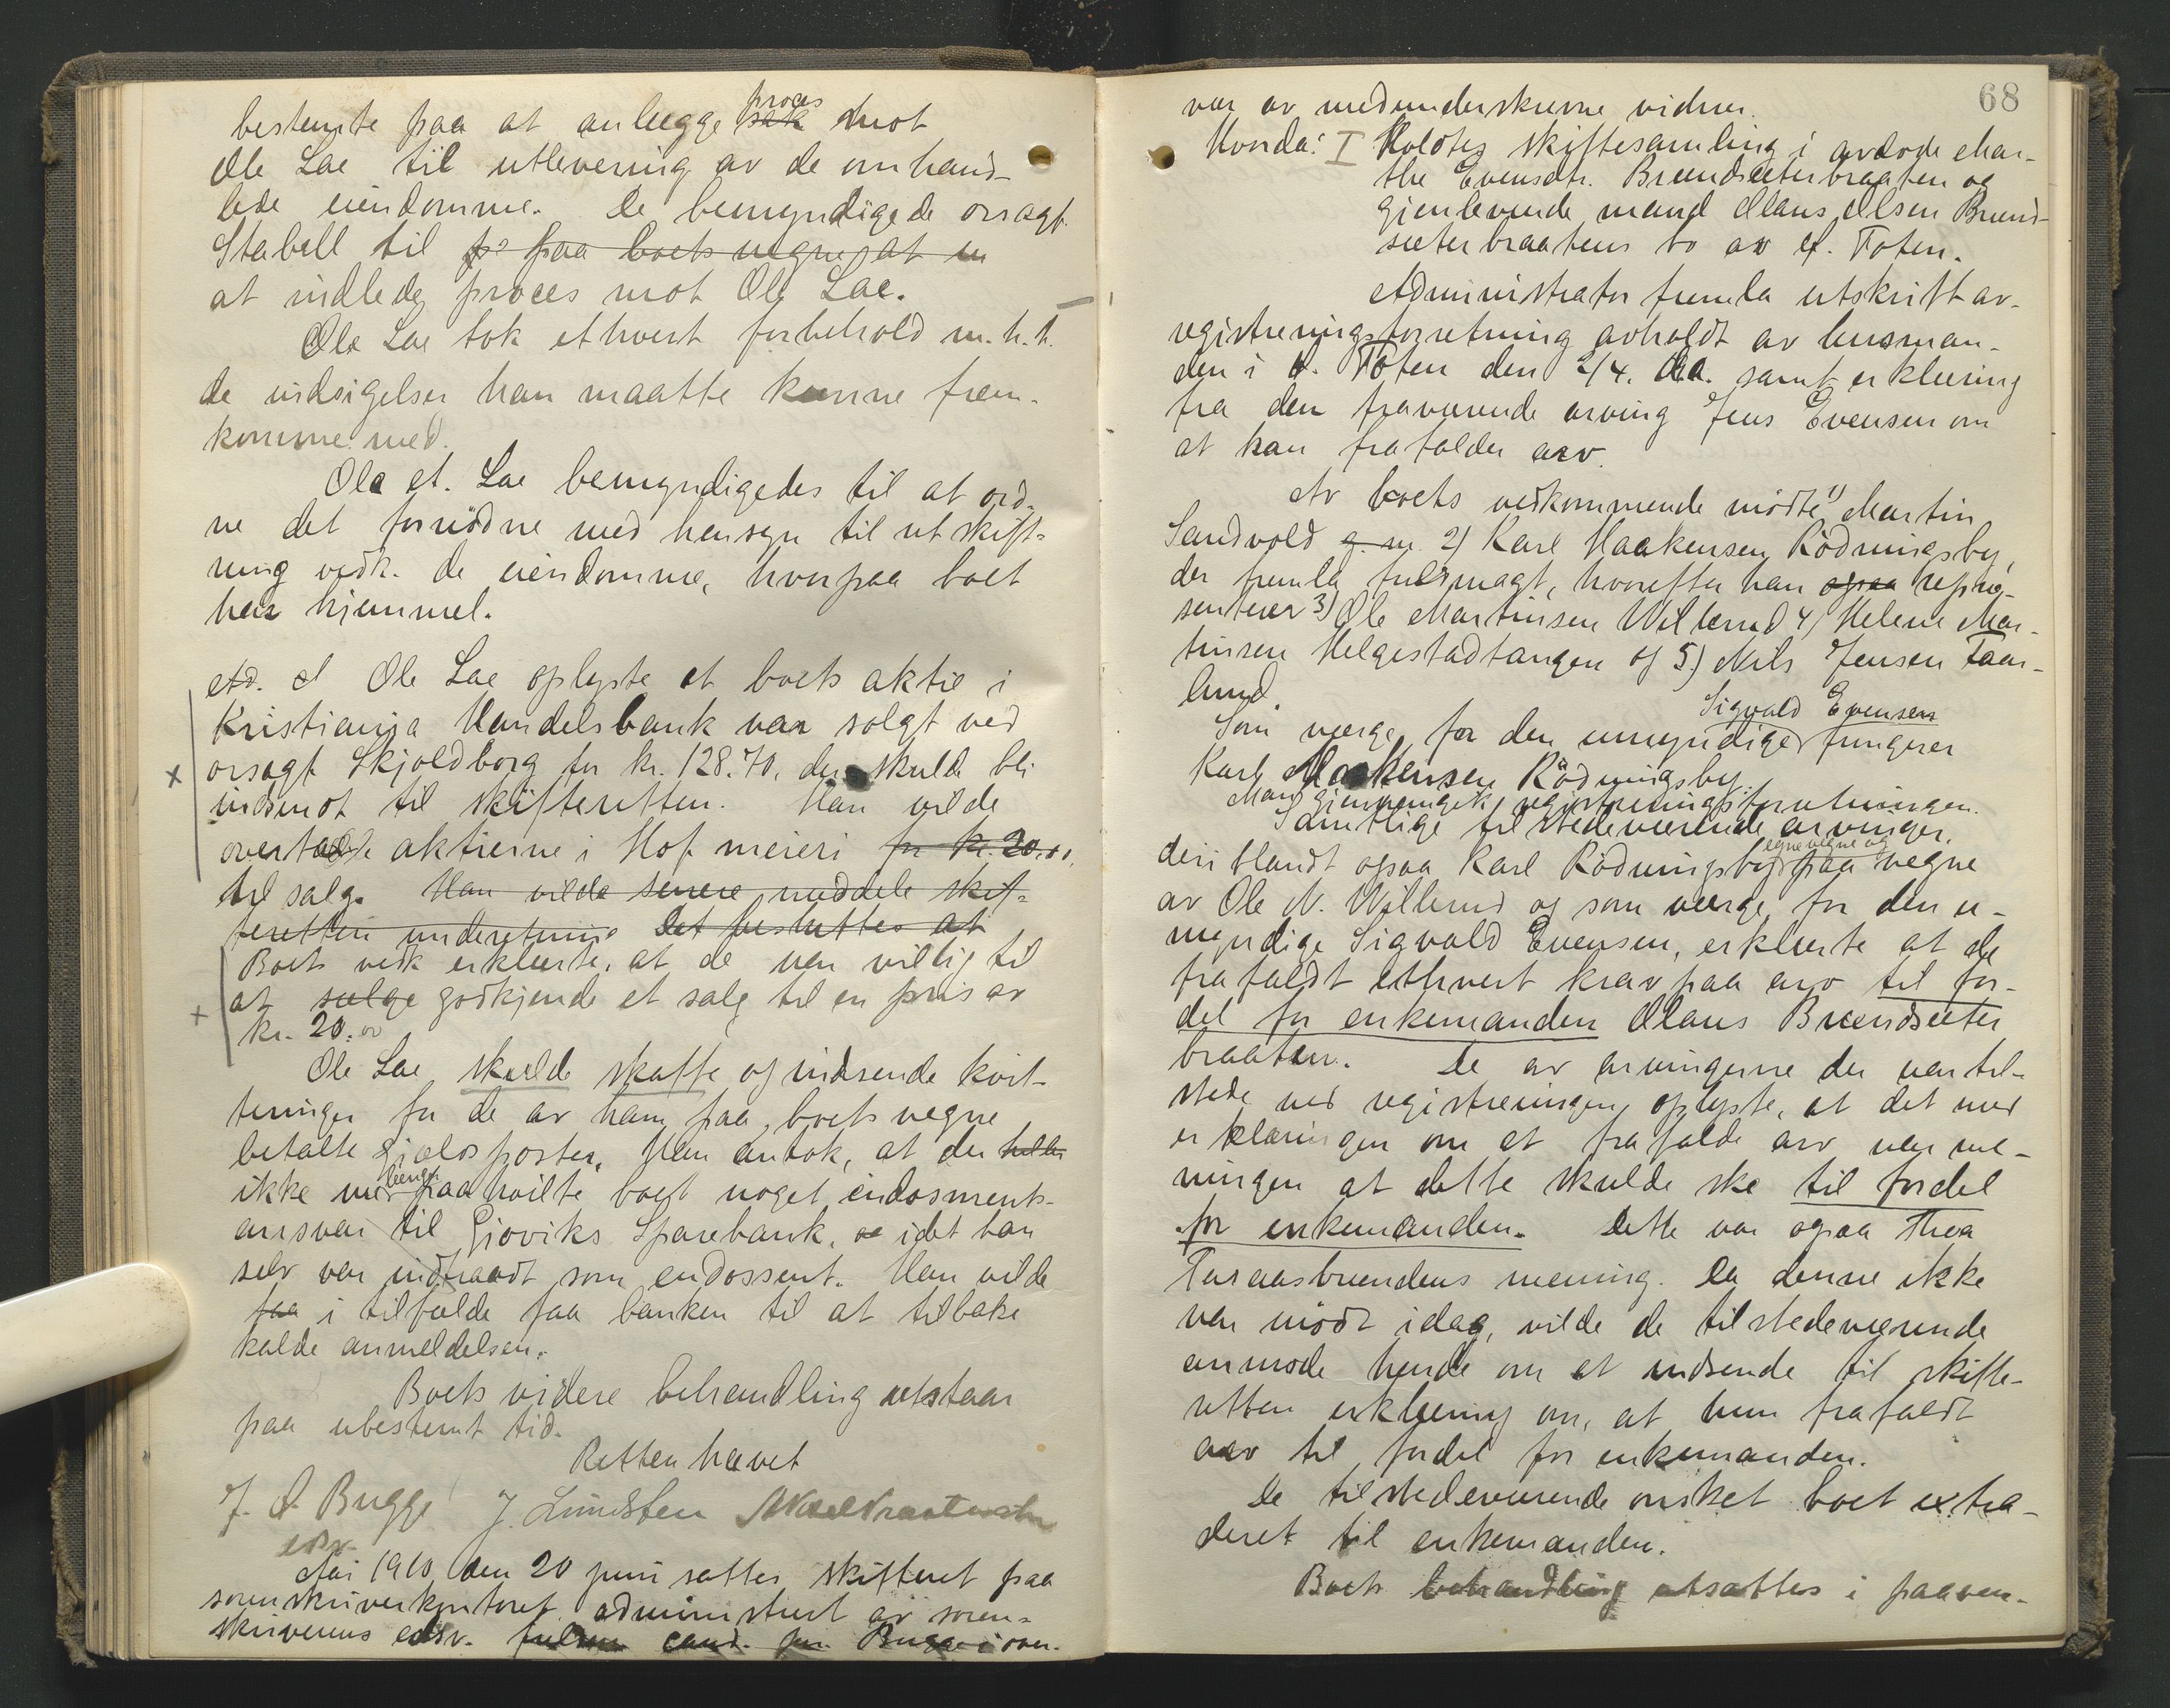 bestemte paa at anlægge sak proces mot
Ole Lae til utlevering av de omhand-
lede eiendomme. De bemyndigede orsagf.
Stabell til paa boets vegne at
at indlede proces mot Ole Lae.
Ole Lae tok ethvert forbehold m.h.t.
de indsigelser han maatte kunne frem-
komme med.
Ole A. Lae bemyndigedes til at ord-
ne det fornødne med hensyn til utskift-
ning vedk. de eiendomme, hvorpaa boet
har hjemmel.
Ole Lae oplyste at boets aktie i
Kristiania Handelsbank var solgt ved
orsagf. Skjoldborg for kr. 128.70, der skulde bli
indsendt til skifteretten. Han vilde
overta aktierne i Hof meieri for kr. 20.00.
til salg. Han vilde senere meddele skif-
teretten underretning Det besluttes at
Boets vedk. erklærte, at de var villig til
at sælge godkjende et salg til en pris av
kr. 20.00
Ole Lae skulde skaffe og indsende kvit-
teringer for de av ham paa boets vegne
betalte gjældsposter. Han antok, at der heller
ikke mer længer paahvilte boet noget endosments-
ansvar til Gjøviks Sparebank, idet han
selv var indtraadt som endossent. Han vilde
faa i tilfælde faa banken til at tilbake
kalde anmeldelsen.
Boets videre behandling utstaar
paa ubestemt tid.
Retten hævet
J. A. Bugge J. Lundsten
edsv.
Aar 1910 den 20 juni sattes skifteret paa
sorenskriverkontoret administrert av soren-
skriverens edsv. fuldm. cand. jur. Bugge i over-
68
vær av medunderskrevne vidner.
Hvorda: I Holdtes skiftesamling i avdøde Mar-
the Evensdtr. Brændsæterbraaten og
gjenlevende mand Olaus Olsen Brænd-
sæterbraatens bo av Ø. Toten.
Administrator fremla utskrift av
registreringsforretning avholdt av lensman-
den i V. Toten den 2/4. d.a. samt erklæring
fra den fraværende arving Jens Evensen om
at han frafalder arv.
Av boets vedkommende mødte 1) Martin
Sandvold g.m. 2) Karl Haakensen Rødningsby,
der fremla fuldmagt, hvorefter han ogsaa repræ-
senterer 3) Ole Martinsen Willerud 4) Helene Mar-
tinsen Helgestadtangen og 5) Nils Jensen Faar-
lund.
Som værge for den umyndige Sigvald Evensen fungerer
Karl Haakensen Rødningsby.
Man gjennemgik registreringsforretningen.
Samtlige tilstedeværende arvinger,
deriblandt ogsaa Karl Rødningsby egne vegne og paa vegne
av Ole M. Willerud og som værge for den u-
myndige Sigvald Evensen, erklærte at de
frafaldt ethvert krav paa arv til for-
del for enkemanden Olaus Brændsæter
braaten. De av arvingerne der var til-
stede ved registreringen, oplyste, at det med
erklæringen om at frafalde arv var me-
ningen at dette skulde ske til fordel
for enkemanden. Dette var ogsaa Thea
Turaasbrændens mening. Da denne ikke
var mødt idag, vilde de tilstedeværende
anmode hende om at indsende til skifte-
retten erklæring om, at hun frafaldt
arv til fordel for enkemanden.
De tilstedeværende ønsket boet extra-
deret til enkemanden.
Boets behandling utsattes i paaven-